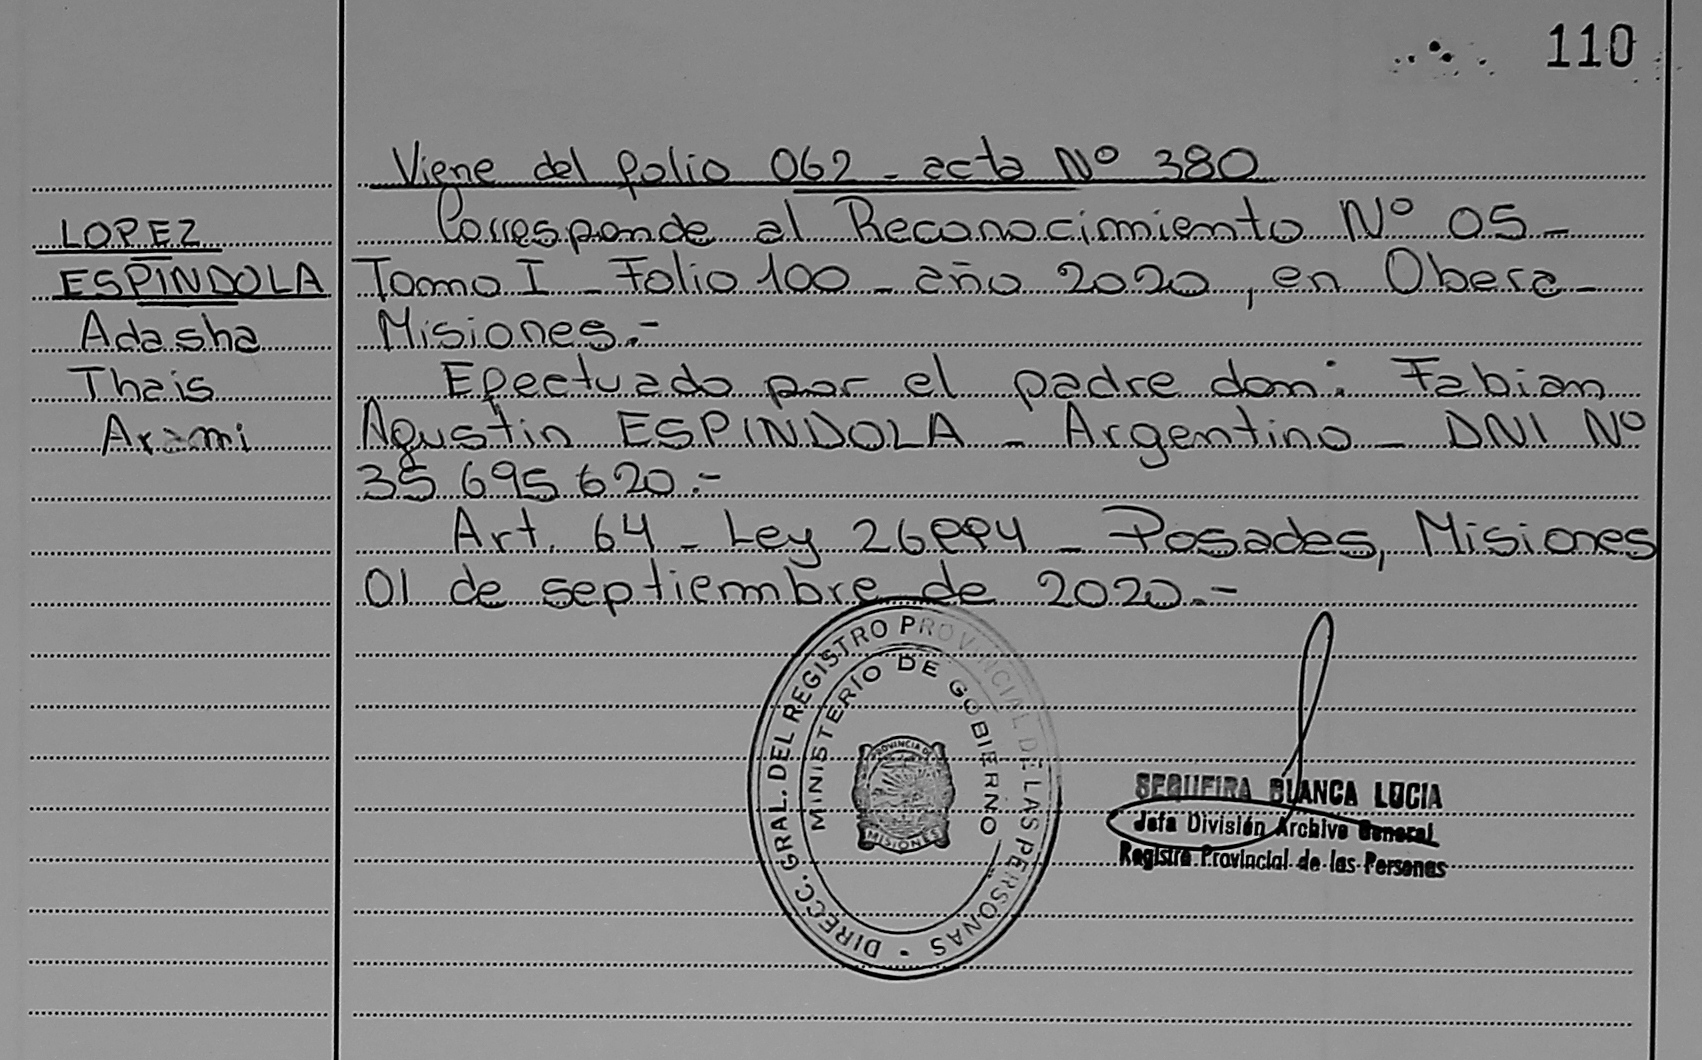 110
Viene del folio 062 - acta Nº 380
LOPEZ
ESPINDOLA
Adasha
Thais
Arami
Corresponde al Reconocimiento Nº 05 -
Tomo I - Folio 100 - año 2020, en Obera -
Misiones.-
Efectuado por el padre don: Fabian
Agustin ESPINDOLA - Argentino - DNI Nº
35.695.620.-
Art. 64 - Ley 26994 - Posadas, Misiones
01 de septiembre de 2020.-
DIRECC. GRAL. DEL REGISTRO PROVINCIAL DE LAS PERSONAS
MINISTERIO DE GOBIERNO
PROVINCIA DE
MISIONES
SEQUEIRA BLANCA LUCIA
Jefa División Archivo General
Registro Provincial de las Personas